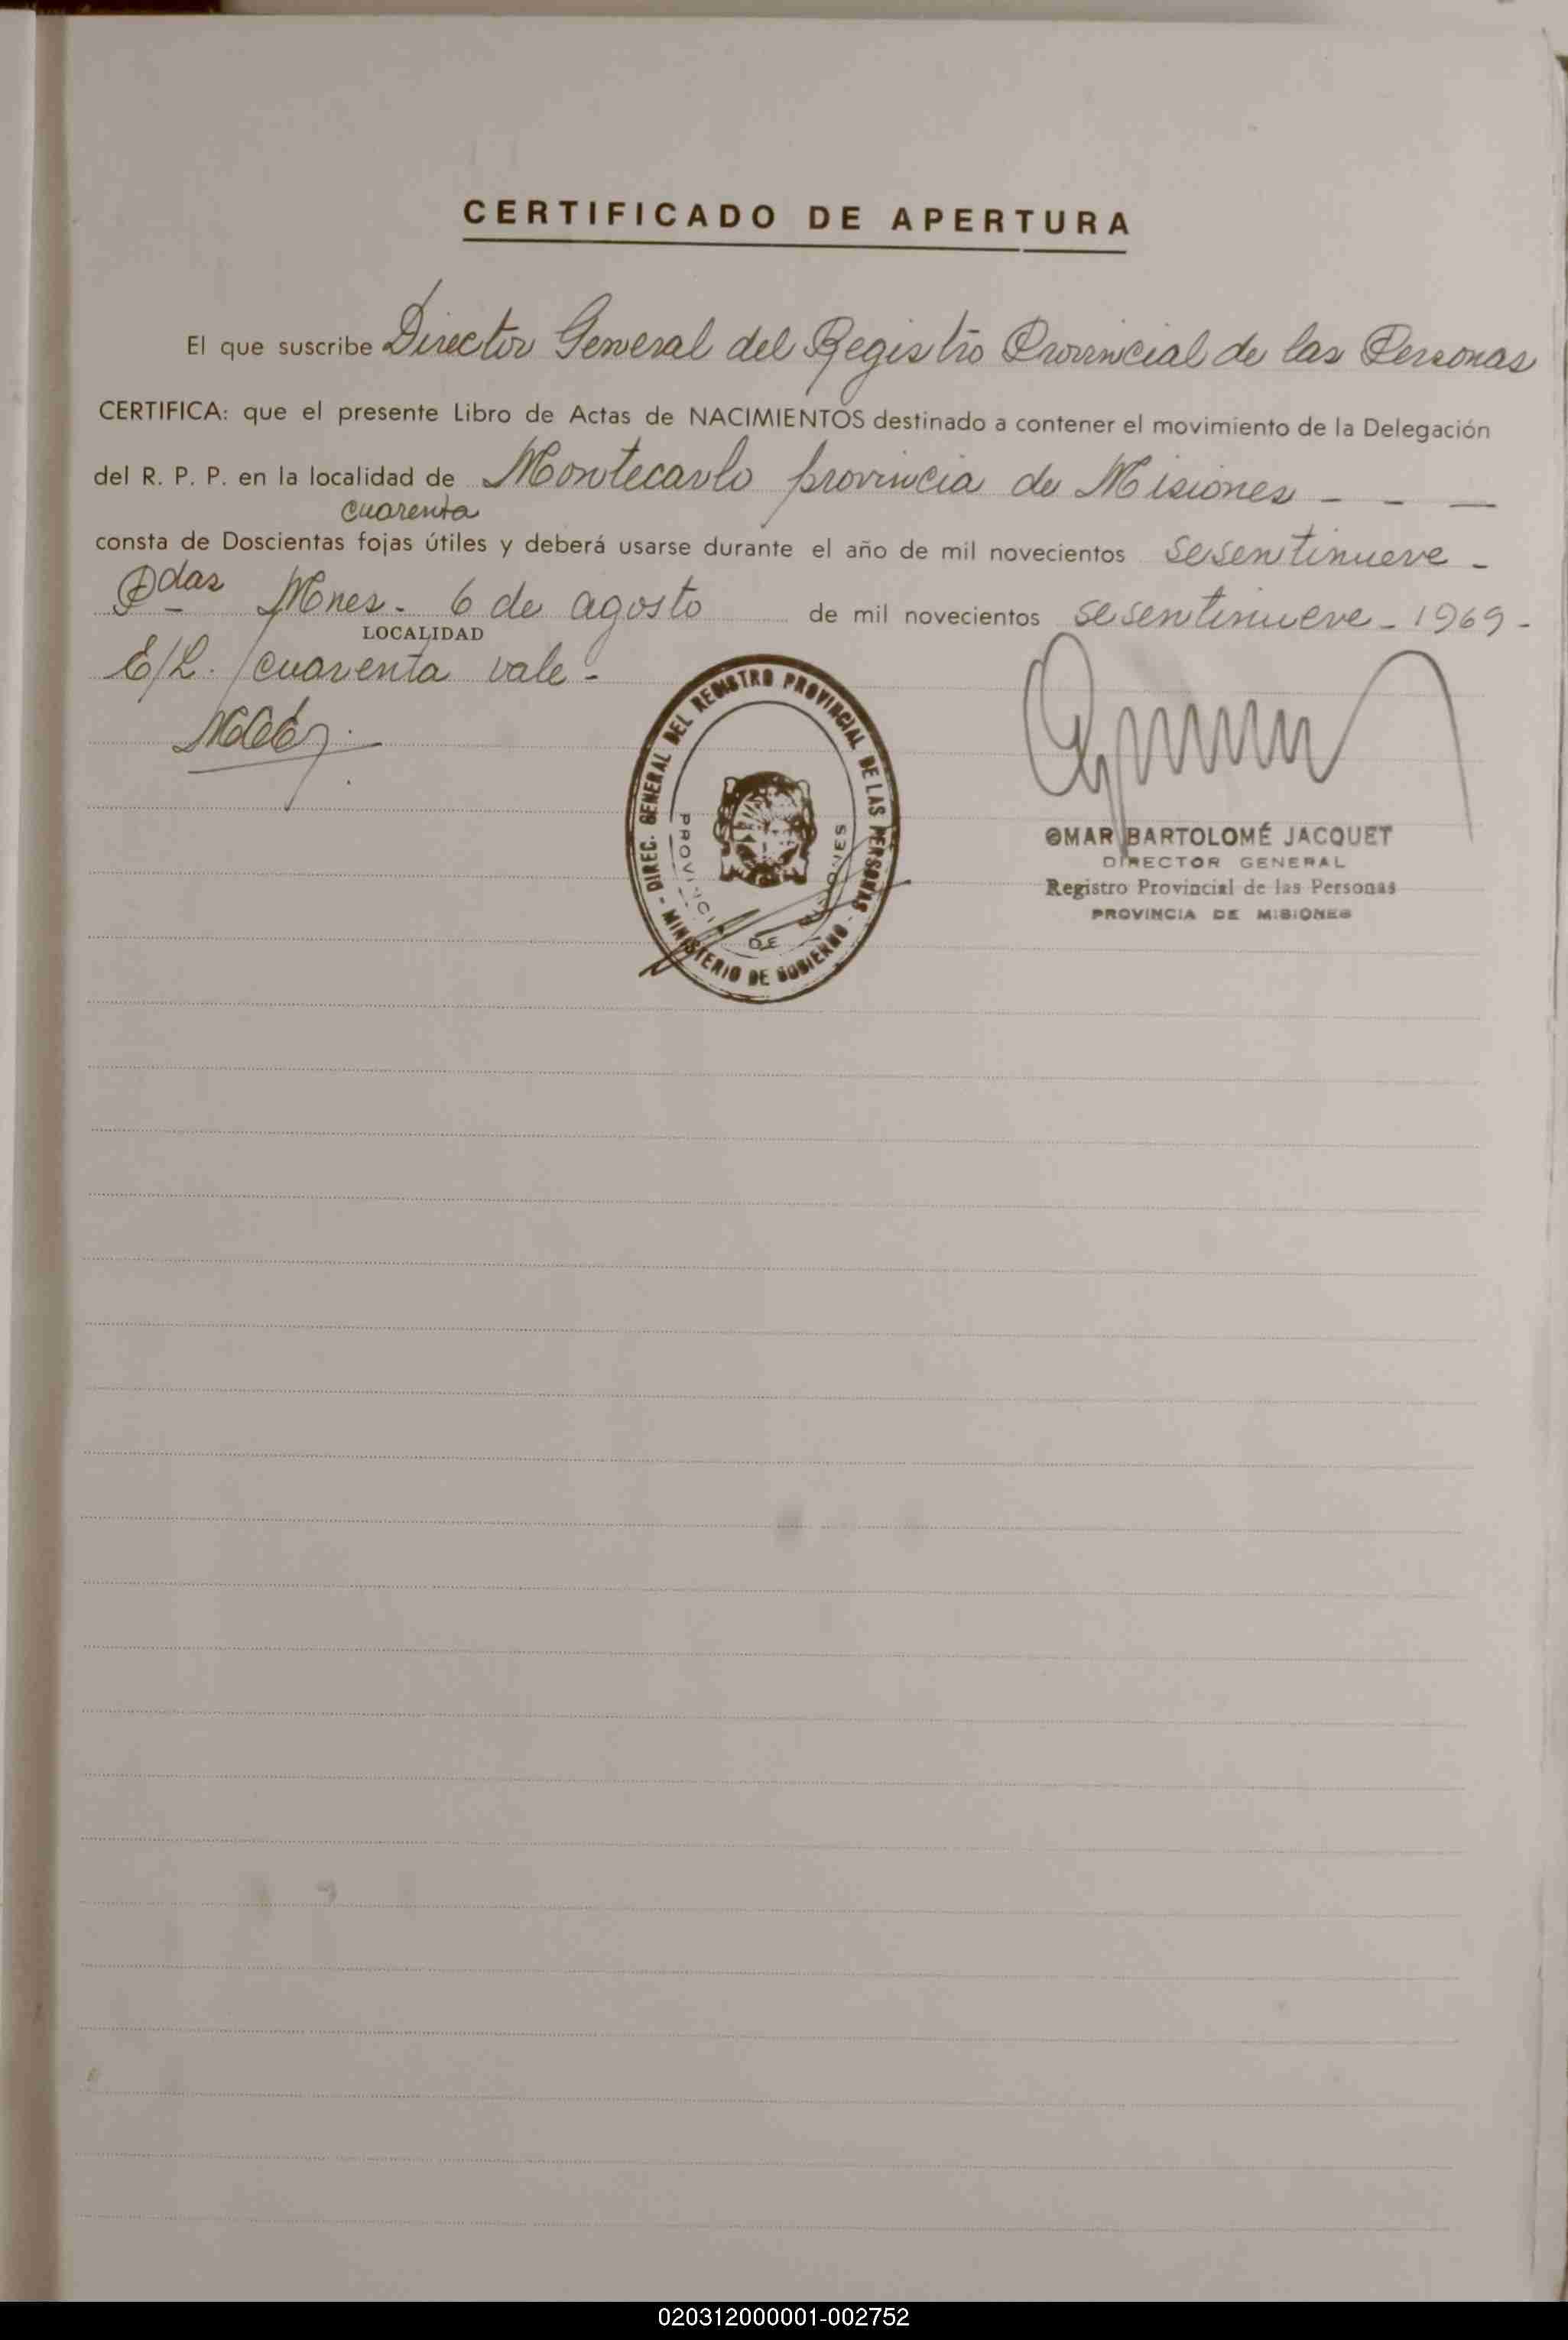 CERTIFICADO DE APERTURA
El que suscribe Director General del Registro Provincial de las Personas
CERTIFICA: que el presente Libro de Actas de NACIMIENTOS destinado a contener el movimiento de la Delegación
del R. P. P. en la localidad de Montecarlo provincia de Misiones - - -
cuarenta
consta de Doscientas fojas útiles y deberá usarse durante el año de mil novecientos sesentinueve -
Pdas Mnes. 6 de agosto de mil novecientos sesentinueve - 1969 -
LOCALIDAD
E/L. cuarenta vale -
DIREC. GENERAL DEL REGISTRO PROVINCIAL DE LAS PERSONAS - MINISTERIO DE GOBIERNO -
PROVINCIA DE MISIONES
OMAR BARTOLOMÉ JACQUET
DIRECTOR GENERAL
Registro Provincial de las Personas
PROVINCIA DE MISIONES
020312000001-002752